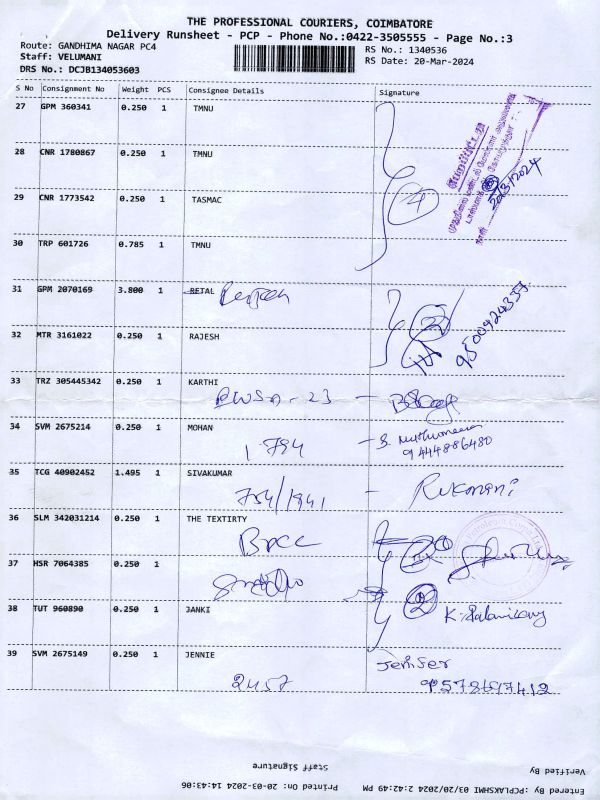 THE PROFESSIONAL COURIERS, COIMBATORE
Delivery Runsheet - PCP - Phone No.:0422-3505555 - Page No.:3
Route: GANDHIMA NAGAR PC4
RS No.: 1340536
Staff: VELUMANI
RS Date: 20-Mar-2024
DRS No.: DCJB134053603
S No Consignment No Weight PCS Consignee Details Signature
27 GPM 360341 0.250 1 TMNU
28 CNR 1780867 0.250 1 TMNU
29 CNR 1773542 0.250 1 TASMAC
4
30 TRP 601726 0.785 1 TMNU
31 GPM 2070169 3.800 1 RETAL
32 MTR 3161022 0.250 1 RAJESH
33 TRZ 305445342 0.250 1 KARTHI
34 SVM 2675214 0.250 1 MOHAN
1.794
9444886480
35 TCG 40902452 1.495 1 SIVAKUMAR
754/1941 - Rukmani
36 SLM 342031214 0.250 1 THE TEXTIRTY
BPCL
37 HSR 7064385 0.250 1
2
38 TUT 960890 0.250 1 JANKI
39 SVM 2675149 0.250 1 JENNIE
2457
Staff Signature
Verified By
Printed On: 20-03-2024 14:43:06
Entered By:PCPLAKSHMI 03/20/2024 2:42:49 PM